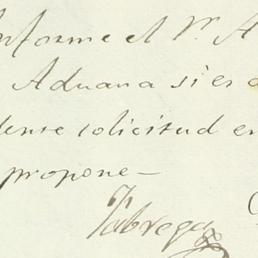 Informe el Sr. A
Aduana si es
dente solicitud en
propone—
Fabrega